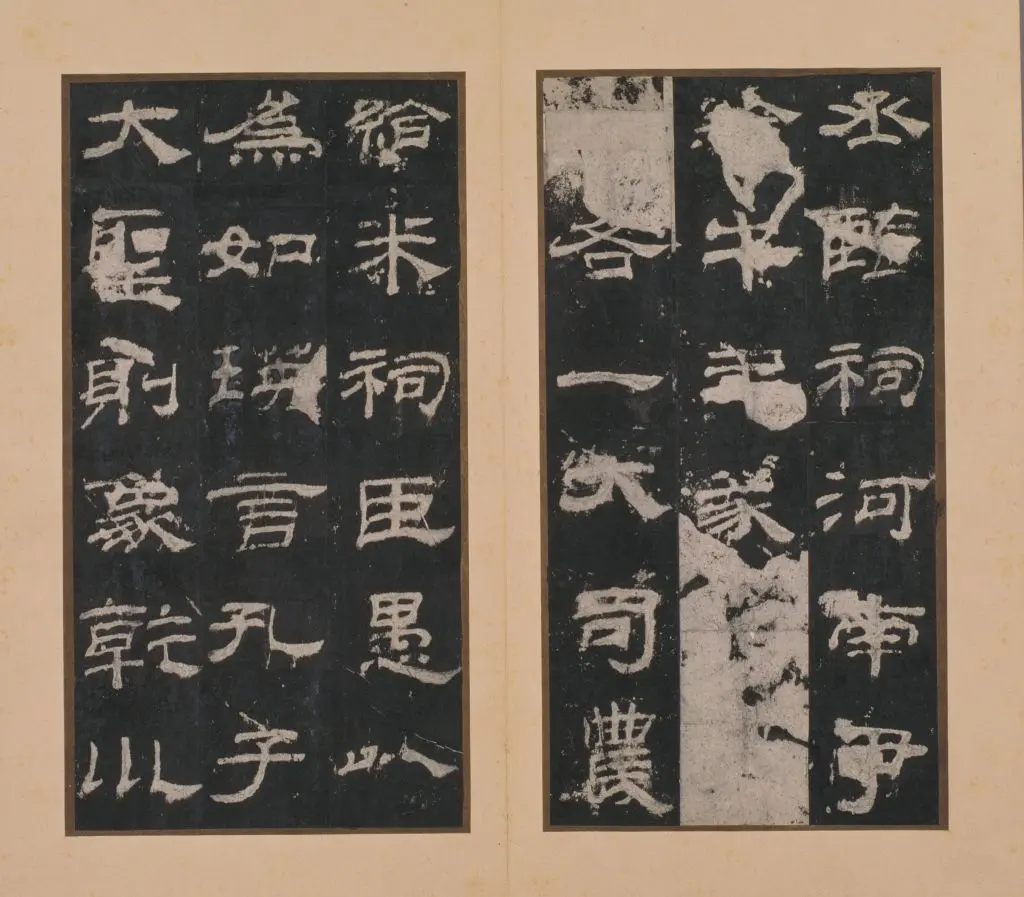 丞監祠河南尹
牛羊豕
各一大司農
給米祠臣愚以
為如瑛言孔子
大聖則象乾川